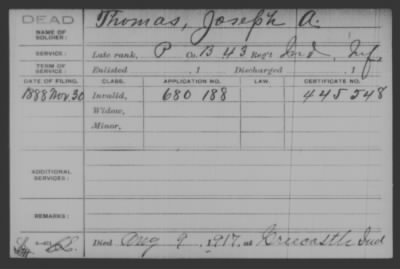 DEAD
NAME OF SOLDIER: Thomas, Joseph A.
SERVICE: Late rank, P Co. B 43 Reg't Ind. Inf.
TERM OF SERVICE: Enlisted , 1 Discharged , 1
DATE OF FILING. CLASS. APPLICATION NO. LAW. CERTIFICATE NO.
1888 Nov 30 Invalid, 680 188 445 548
Widow,
Minor,
ADDITIONAL SERVICES:
REMARKS:
Died Aug 9, 1917, at Greencastle Ind